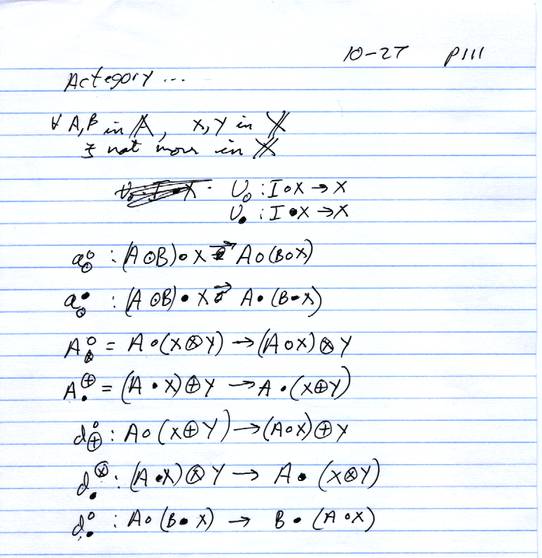 10-27 p111
Actegory...
∀ A,B in 𝔸, X,Y in 𝕏
not in 𝕏
U∘ : I∘X → X
U• : I•X → X
a∘⊙ : (A⊙B)∘X → A∘(B∘X)
a•⊙ : (A⊙B)•X → A•(B•X)
A∘⊗ = A∘(X⊗Y) → (A∘X)⊗Y
A⊕• = (A•X)⊕Y → A•(X⊕Y)
d∘⊕ : A∘(X⊕Y) → (A∘X)⊕Y
d⊗• : (A•X)⊗Y → A•(X⊗Y)
d∘• : A∘(B•X) → B•(A∘X)